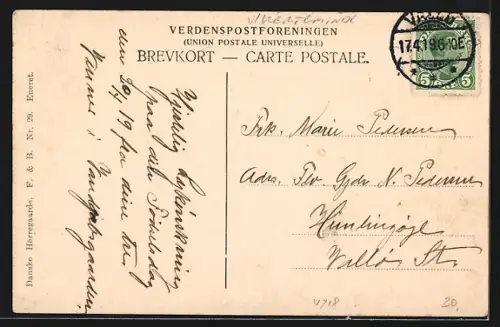 VERDENSPOSTFORENINGEN
(UNION POSTALE UNIVERSELLE)
BREVKORT — CARTE POSTALE.
17.4.19. 6-10E
5 5
Danske Herregaarde. F. & H. Nr. 29. Eneret.
Hjertelig Lykønskning
paa din Fødselsdag
den 20/4 19 fra dine tro
Venner i Vandgaarden
Frk. Marie Pedersen
Adrs. Fhv. Gjdr N. Pedersen
Himlingøje
Valló St.
4718
20.